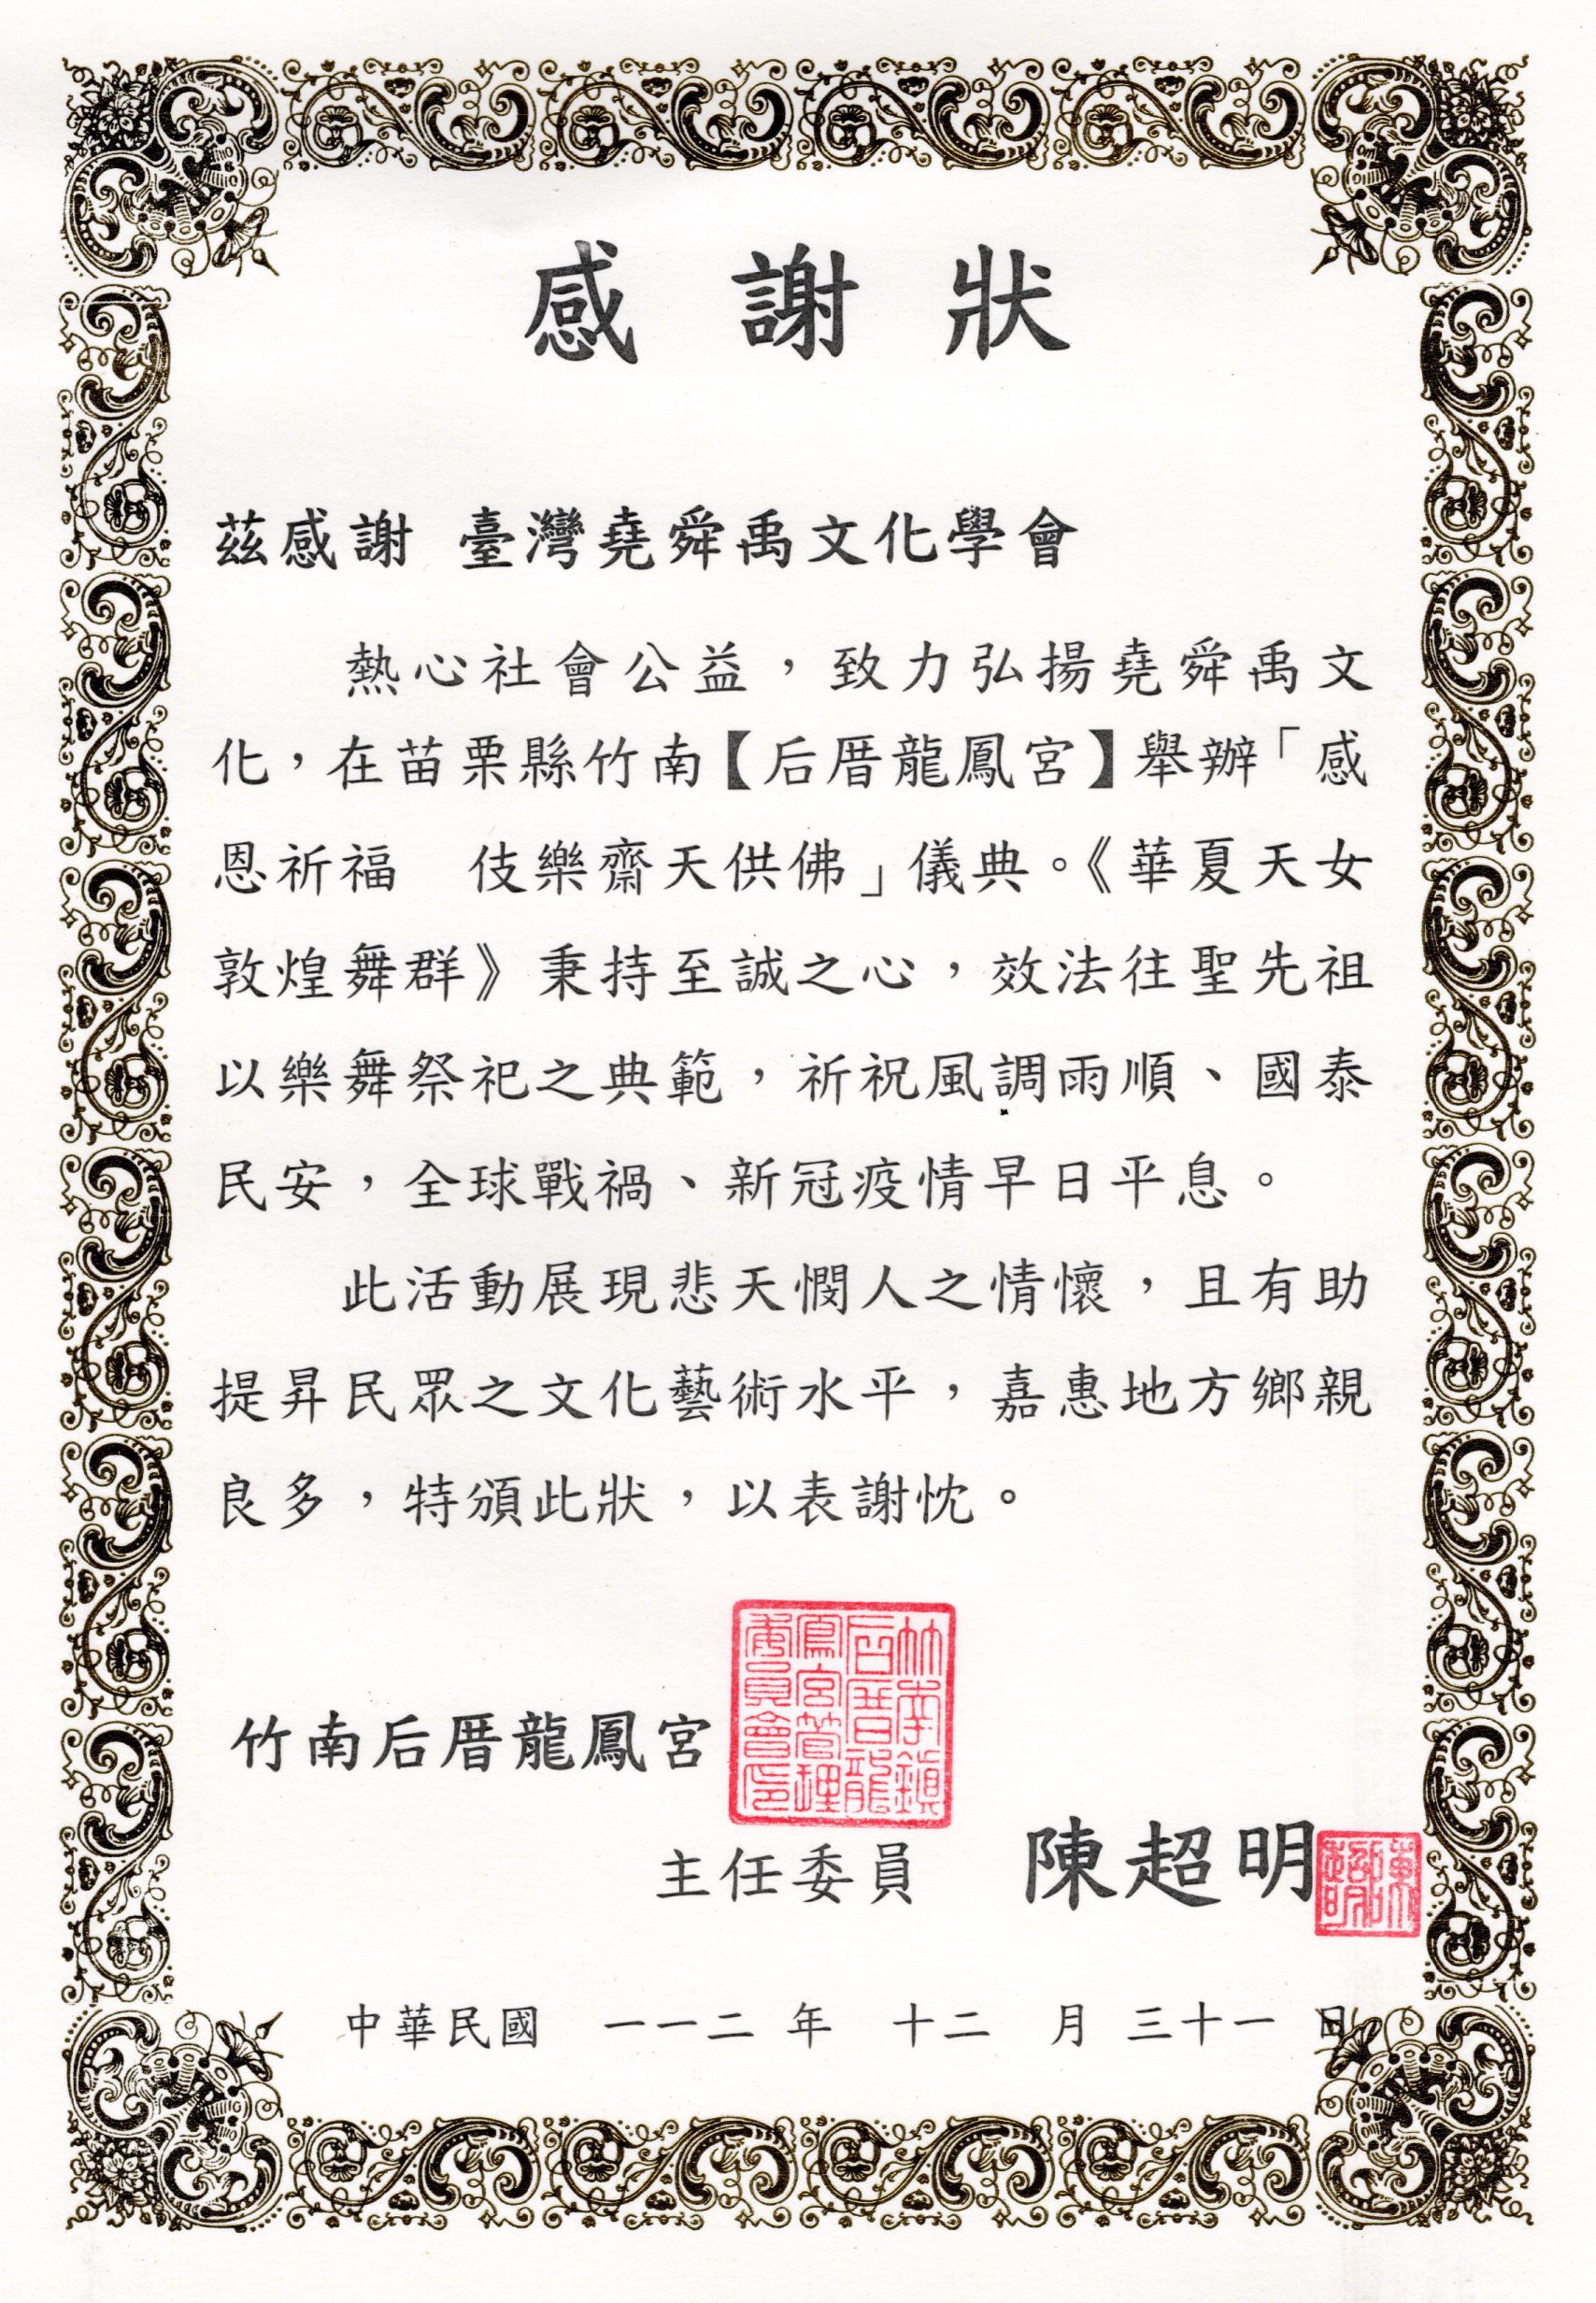 感謝狀
茲感謝 臺灣堯舜禹文化學會
熱心社會公益，致力弘揚堯舜禹文
化，在苗栗縣竹南【后厝龍鳳宮】舉辦「感
恩祈福　伎樂齋天供佛」儀典。《華夏天女
敦煌舞群》秉持至誠之心，效法往聖先祖
以樂舞祭祀之典範，祈祝風調雨順、國泰
民安，全球戰禍、新冠疫情早日平息。
此活動展現悲天憫人之情懷，且有助
提昇民眾之文化藝術水平，嘉惠地方鄉親
良多，特頒此狀，以表謝忱。
竹南鎮
后厝龍
鳳宮管理
委員會印
竹南后厝龍鳳宮
主任委員 陳超明
陳超明
中華民國 一一二 年 十二 月 三十一 日